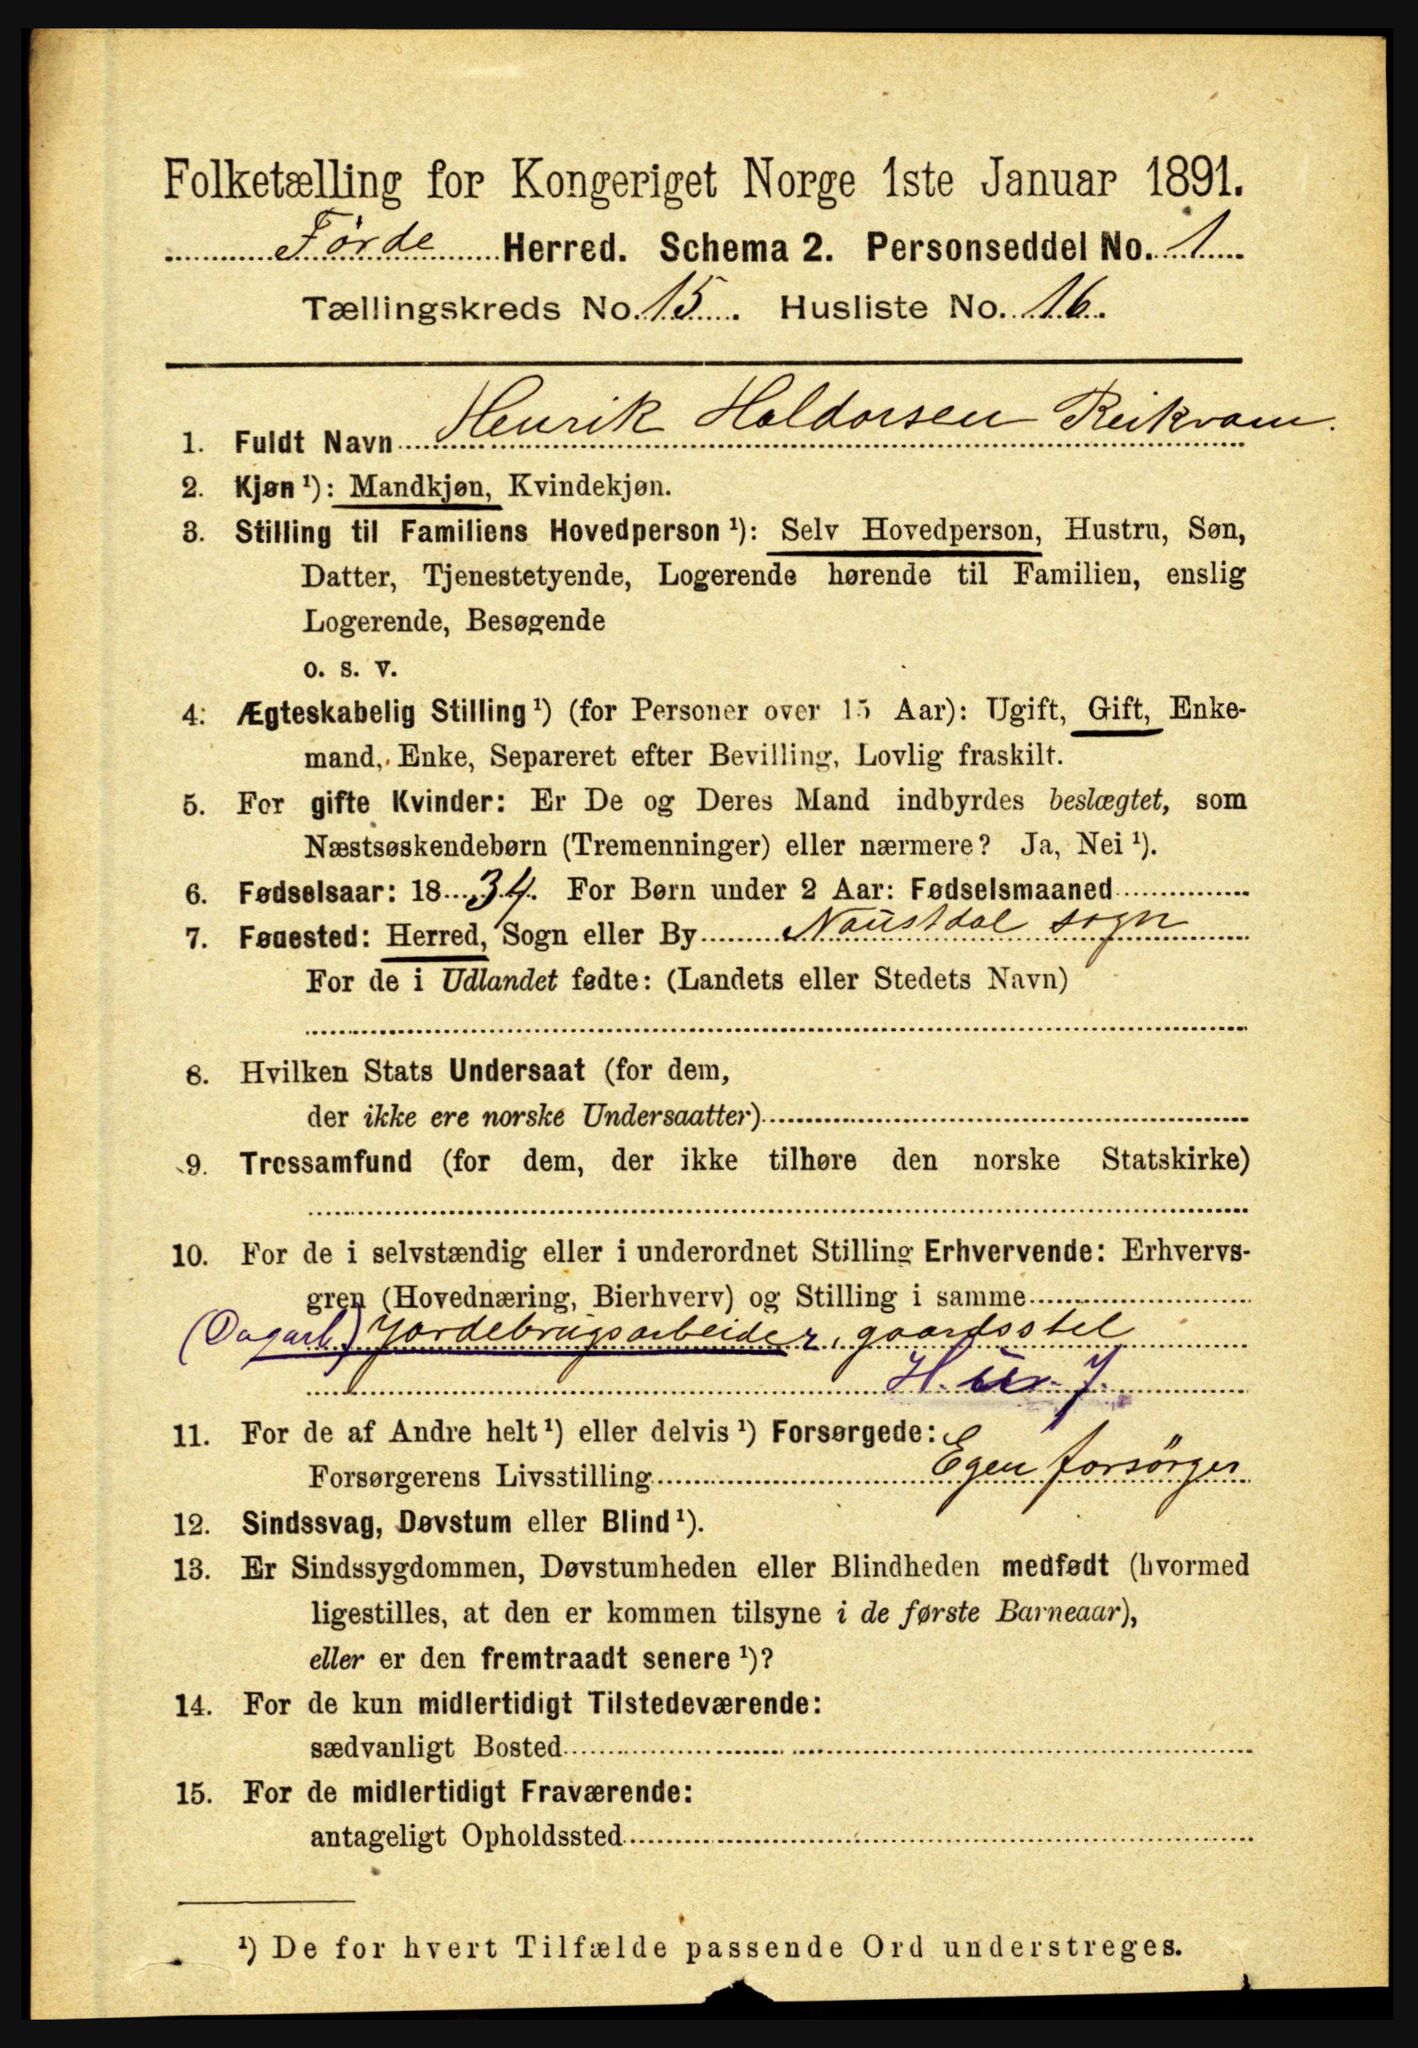 Folketælling for Kongeriget Norge 1ste Januar 1891.
Förde Herred. Schema 2. Personseddel No. 1
Tællingskreds No. 15. Husliste No. 16.
1. Fuldt Navn Henrik Haldorsen Reikvam.
2. Kjøn ¹): Mandkjøn, Kvindekjøn.
3. Stilling til Familiens Hovedperson ¹): Selv Hovedperson, Hustru, Søn,
Datter, Tjenestetyende, Logerende hørende til Familien, enslig
Logerende, Besøgende
o. s. v.
4. Ægteskabelig Stilling ¹) (for Personer over 15 Aar): Ugift, Gift, Enke-
mand, Enke, Separeret efter Bevilling, Lovlig fraskilt.
5. For gifte Kvinder: Er De og Deres Mand indbyrdes beslægtet, som
Næstsøskendebørn (Tremenninger) eller nærmere? Ja, Nei ¹).
6. Fødselsaar: 1834. For Børn under 2 Aar: Fødselsmaaned
7. Fødested: Herred, Sogn eller By Naustdal sogn
For de i Udlandet fødte: (Landets eller Stedets Navn)
8. Hvilken Stats Undersaat (for dem,
der ikke ere norske Undersaatter)
9. Trossamfund (for dem, der ikke tilhøre den norske Statskirke)
10. For de i selvstændig eller i underordnet Stilling Erhvervende: Erhvervs-
gren (Hovednæring, Bierhverv) og Stilling i samme
(Dagarb.) Jordebrugsarbeider, gaardsstel
11. For de af Andre helt ¹) eller delvis ¹) Forsørgede:
Forsørgerens Livsstilling Egen forsörger
12. Sindssvag, Døvstum eller Blind ¹).
13. Er Sindssygdommen, Døvstumheden eller Blindheden medfødt (hvormed
ligestilles, at den er kommen tilsyne i de første Barneaar),
eller er den fremtraadt senere ¹)?
14. For de kun midlertidigt Tilstedeværende:
sædvanligt Bosted
15. For de midlertidigt Fraværende:
antageligt Opholdssted
¹) De for hvert Tilfælde passende Ord understreges.